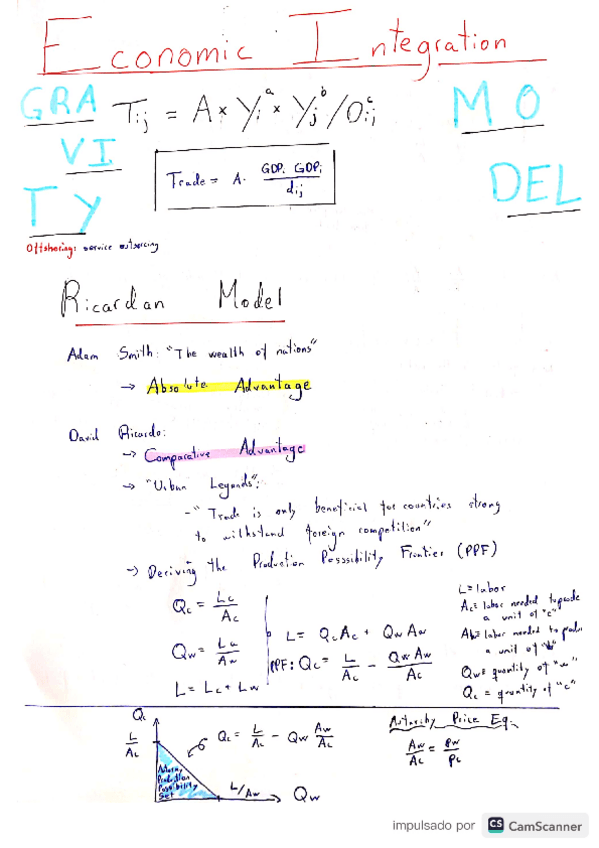 Economic Integration
GRA
VI
TY
MO
DEL
Tij = A × Yi^a × Yj^b / Dij^c
Trade = A · GDPi GDPj / dij
Offshoring: service outsorcing
Ricardan Model
Adam Smith: "The wealth of nations"
→ Absolute Advantage
David Ricardo:
→ Comparative Advantage
→ "Urban Legends":
- "Trade is only beneficial for countries strong
to withstand foreign competition"
→ Deriving the Production Posssibility Frontier (PPF)
Qc = Lc / Ac
Qw = Lw / Aw
L = Lc + Lw
L = QcAc + QwAw
PPF: Qc = L / Ac - QwAw / Ac
L = labor
Ac = labor needed to
a unit of "c"
Aw = labor needed to
a unit of "w"
Qw = quantity of "w"
Qc = quantity of "c"
Qc
L / Ac
Qc = L / Ac - Qw Aw / Ac
Production
Possibility
Set
L/Aw
Qw
Autarchy Price Eq.
Aw / Ac = Pw / Pc
impulsado por CS CamScanner